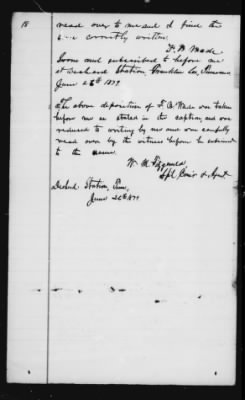 18
read over to me and I find the
same correctly written.
F. B. Wade
Sworn and subscribed to before me
at Decherd Station, Franklin Co, Tennessee
June 26th 1879
The above deposition of F. B. Wade was taken
before me as stated in the caption, and was
reduced to writing by me and was carefully
read over by the witness before he subscribed
to the same.
W. M.
Spl Comr & Agent
Decherd Station, Tenn,
June 26th 1879